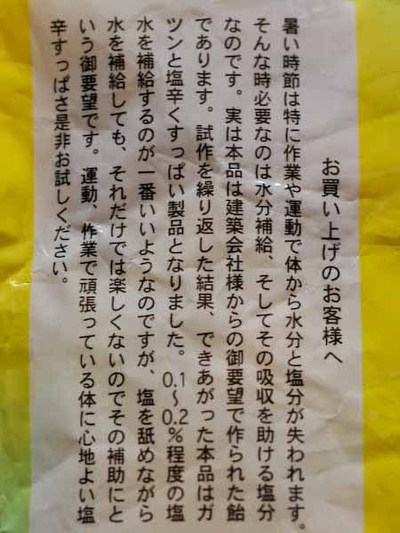 お買い上げのお客様へ
暑い時節は特に作業や運動で体から水分と塩分が失われます。
そんな時必要なのは水分補給、そしてその吸収を助ける塩分
なのです。実は本品は建築会社様からの御要望で作られた飴
であります。試作を繰り返した結果、できあがった本品はガ
ツンと塩辛くすっぱい製品となりました。0.1～0.2％程度の塩
水を補給するのが一番いいようなのですが、塩を舐めながら
水を補給しても、それだけでは楽しくないのでその補助にと
いう御要望です。運動、作業で頑張っている体に心地よい塩
辛すっぱさ是非お試しください。